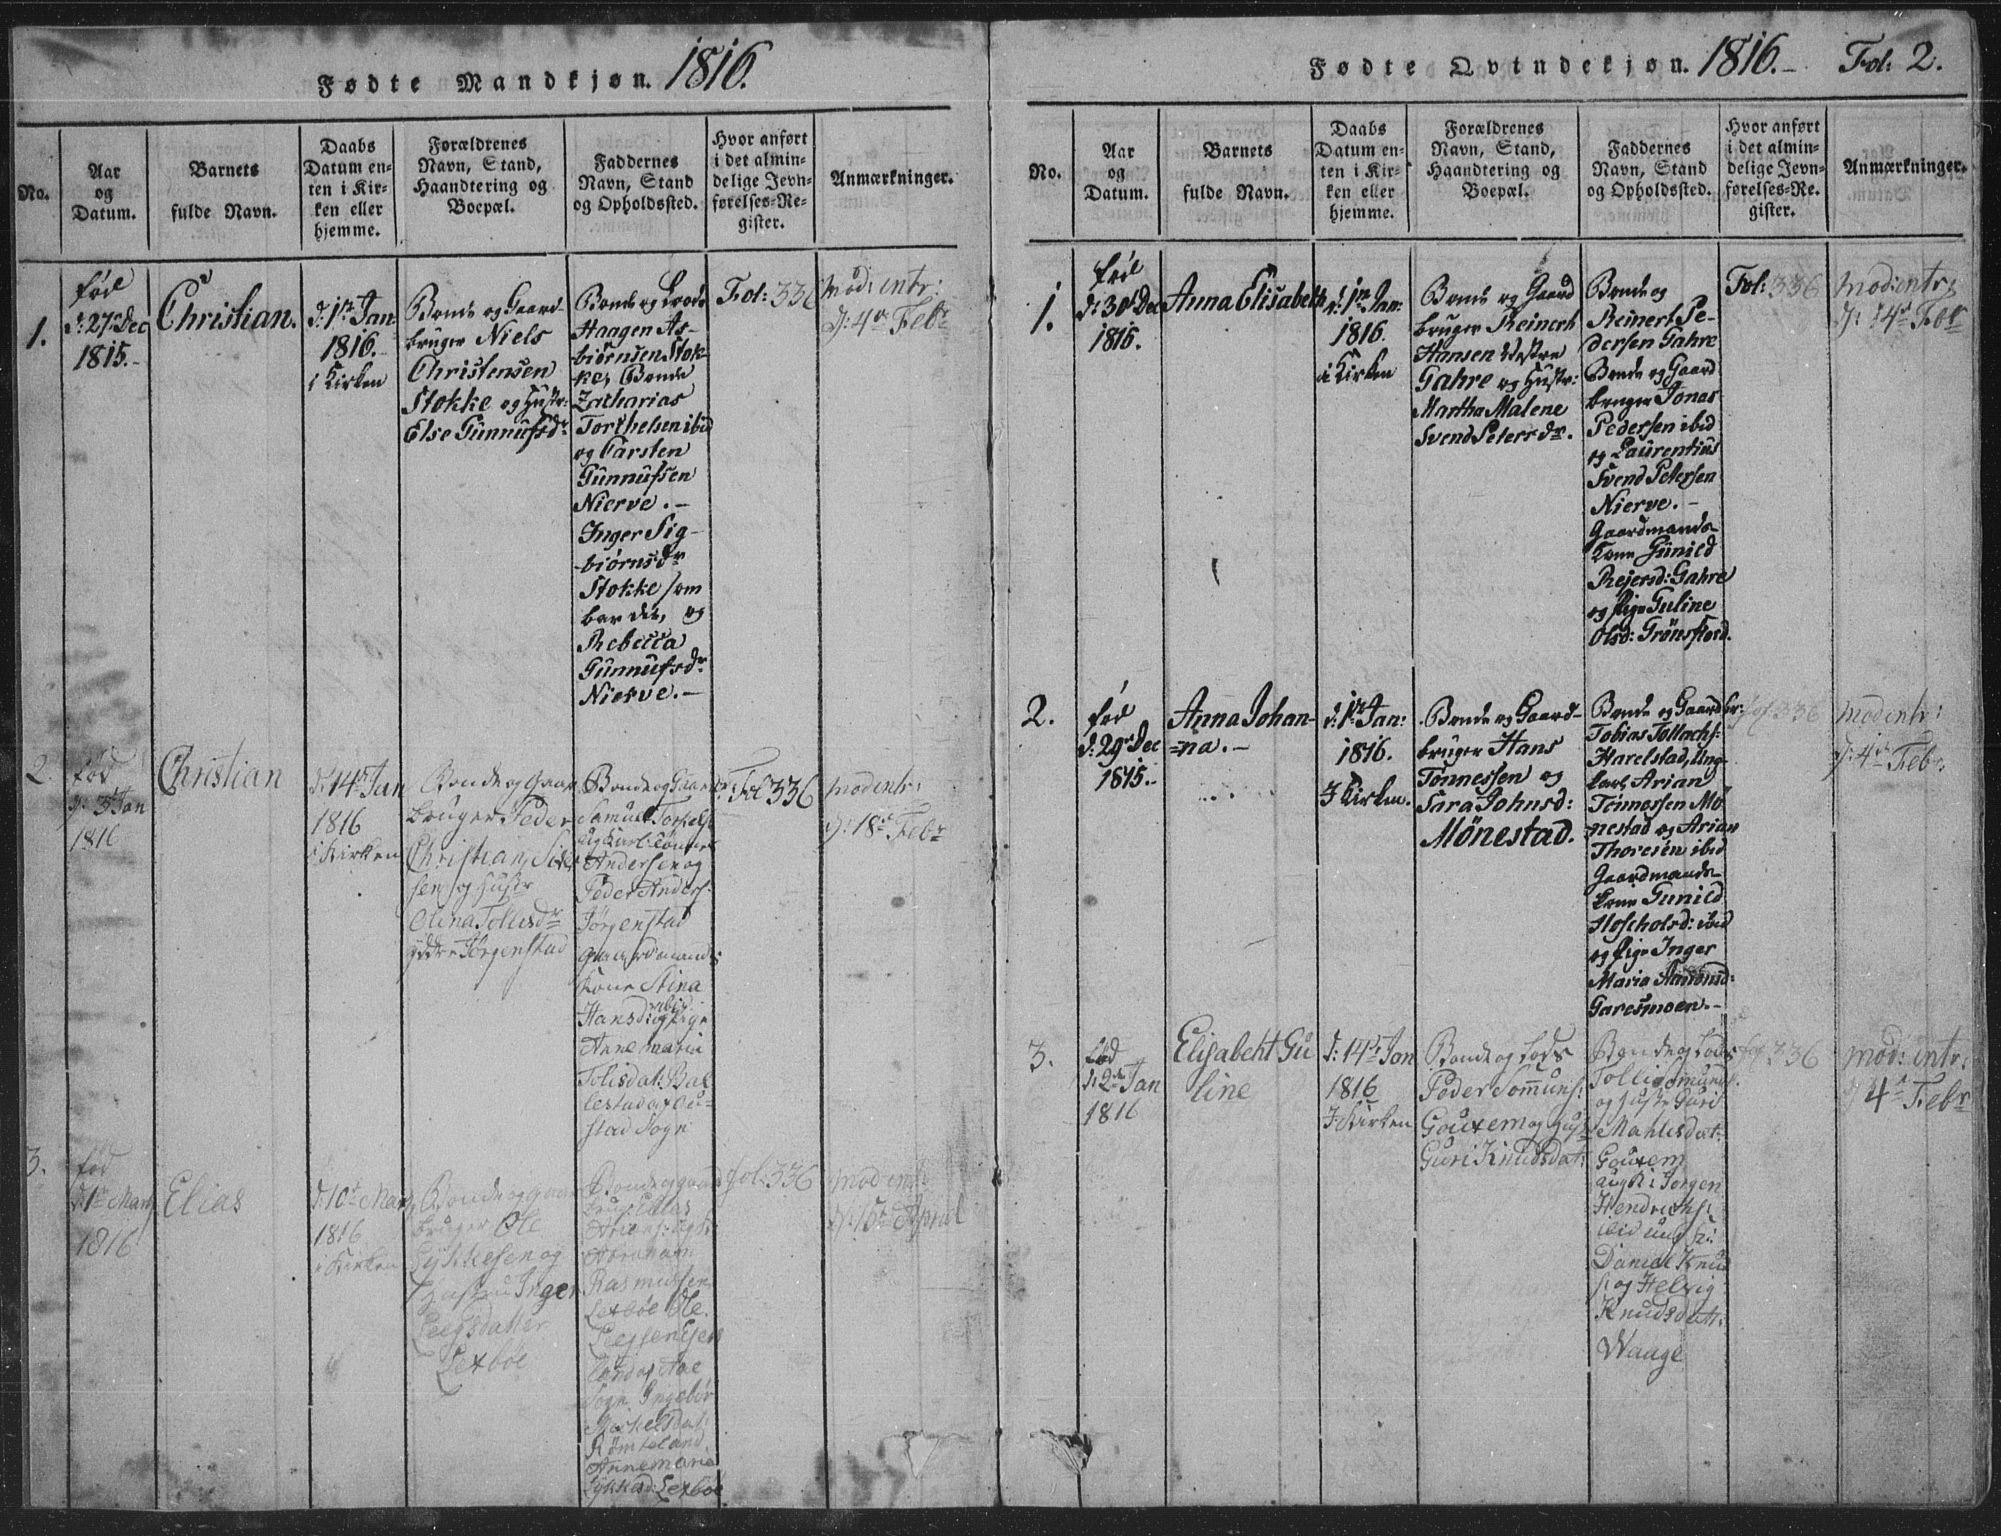 Fødte Mandkjøn. 1816.
No.
Aar
og
Datum.
Barnets
fulde Navn.
Daabs
Datum en-
ten i Kir-
ken eller
hjemme.
Forældrenes
Navn, Stand,
Haandtering og
Boepæl.
Faddernes
Navn, Stand
og Opholdssted.
Hvor anført
i det almin-
delige Jevn-
førelses-Re-
gister.
Anmærkninger.
1.
Fød
d: 27de Dec
1815.-
Christian.
d: 1te Jan
1816.-
i Kirken
Bonde og Gaard-
bruger Niels
Christensen
Stokke og Hustr:
Else Gunnufsdr
Bonde og Lods
Haagen As-
biørnsen Stok-
ke, Bonde
Zacharias
Torkelsen ibid
og Carsten
Gunnufsen
Nierve.-
Inger Sig-
biørnsdr
Stokke som
bar det, og
Rebecca
Gunnufsdr
Nierve.-
Fol: 336
Mod: intr:
d: 4de Febr
2.
Fød
d: 3de Jan
1816
Christian
d: 14de Jan
1816
i Kirken
Bonde og Gaard
bruger Peder
Christian
sen og Hustr
Olina Tollisdr
Jørgenstad
Bonde og Gaard
Samuel
Andersen og
Peder Anders:
Jørgenstad
Gaardmands
Kone Stina
Hansdr ibid
og Pige
Anne Maria
Tolisdat:
stad Sogn
Fol 336
mod intr:
d: 18de Febr
3.
Fød
d: 1te Mars
1816
Elias
d: 10de Mars
1816
i Kirken
Bonde og Gaard
bruger Ole
Lykkesen og
Hustru Inger
Leegsdatter
Lexboe
Bonde og gaard
brug: Elias
Abraham
Rasmussen
Lexbøe Ole
Sogn Ingebor
Mickelsdat:
Annemarie
Lykkesd: Lexboe
fol: 336
mod int
d: 15de April
Fødte Qvindekjøn. 1816.- Fol: 2.
No.
Aar
og
Datum.
Barnets
fulde Navn.
Daabs
Datum en-
ten i Kir-
ken eller
hjemme.
Forældrenes
Navn, Stand,
Haandtering og
Boepæl.
Faddernes
Navn, Stand
og Opholdssted.
Hvor anført
i det almin-
delige Jevn-
førelses-Re-
gister.
Anmærkninger.
1.
Fød
d: 30d Dec
1815.
Anna Elisabeth
d: 1te Jan:
1816.
i Kirken
Bonde og Gaard
bruger Reinert
Hansen Vestre
Gahre og Hustr:
Martha Malene
Svend Petersdr.
Bonde og
Reinert Pe-
dersen Gahre
Bonde og Gaard
bruger Jonas
Pedersen ibid
og Laurentius
Svend Petersen
Nierve.-
Gaardmands-
Kone Gunild
Reiersd: Gahre
og Pige Guline
Olsd: Grønsfiord.
Fol: 336
mod intr:
d: 14de Feb
2.
Fød
d: 29de Dec
1815.
Anna Johan-
=na.-
d: 1te Jan:
1816.
I Kirken.
Bonde og Gaard-
bruger Hans
Tønnessen og
Sara Johnsd:
Mønestad.
Bonde og Gaardbr:
Tobias Tollachs:
Harelstad, Ung-
karl Arian
Tønnessen Mø-
nestad og Arian
Thoresen ibid
Gaardmands-
kone Gunild
ibid
og Pige Inger
Maria Aamunsd:
Garesmoen.-
fol 336
mod intr:
d: 4de Febr
3.
Fød
d: 2de Jan
1816
Elisabeht Gu
line
d: 14de Jan
1816
I Kirken
Bonde og Lods
Peder Sommuns:
Gouxem og Hust
Guri Knudsdat:
Bonde og Lods
Tollig
og Hustr Guri
Mahlisdat:
Gouxem
Jørgen
Hendrichs:
ibid
Daniel Knud
s: og Helvig
Knudsdat:
Waage
fol 336
mod: intr:
d 4de Febr